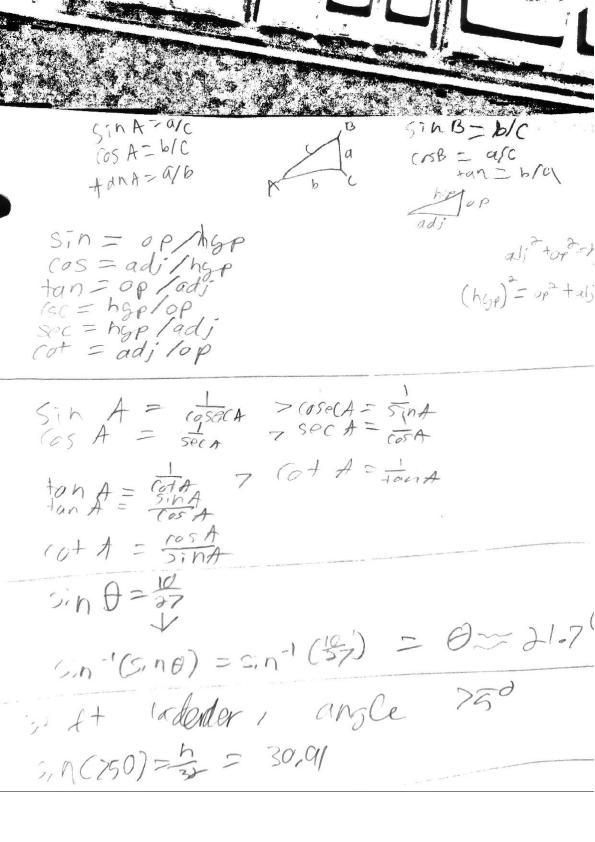 sin A = a/c
cos A = b/c
tan A = a/b
B
c
a
A
b
C
sin B = b/c
cosB = a/c
tan = b/a
hyp
op
adj
sin = op/hyp
cos = adj/hyp
tan = op/adj
csc = hyp/op
sec = hyp/adj
cot = adj/op
adj² + op² =
(hyp)² = op² + adj
sin A = 1/cosecA > cosecA = 1/sinA
cos A = 1/secA > sec A = 1/cosA
tan A = 1/cotA > cot A = 1/tanA
tan A = sinA/cosA
cot A = cosA/sinA
sin θ = 10/27
↓
sin⁻¹(sinθ) = sin⁻¹(10/27) = θ ≈ 21.7
ft ladder, angle 75°
sin(750) = h/32 = 30,91